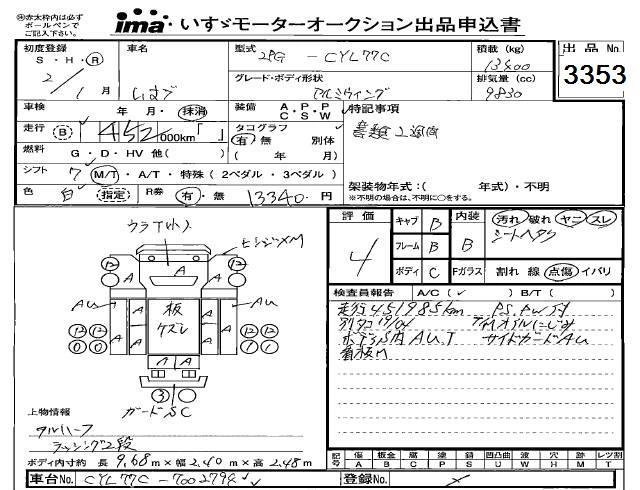 ㊟赤太枠内は必ず
ボールペンで
ご記入下さい。
ima いすゞモーターオークション出品申込書
初度登録
S・H・R
2/1月
車名
いすゞ
型式
2PG - CYL77C
グレード・ボディ形状
アルミウイング
積載 (kg)
13400
排気量 (cc)
9830
出品No.
3353
車検 年 月・抹消
装備 A・P・P C・S・W
特記事項
書類2週間
走行 B 452,000km「 」
タコグラフ
有・無 別体
( 年 )
燃料 G・D・HV 他( )
シフト 7 M/T・A/T・特殊 (2ペダル・3ペダル)
架装物年式:( 年式)・不明
※不明の場合は、不明に○をする。
色 白 指定 R券 有・無 13340円
評価
4
キャブ B
フレーム B
ボディ C
内装 B
Fガラス
汚れ 破れ ヤニ スレ
シートヘタリ
割れ 線 点傷 イバリ
検査員報告 A/C( ✓ ) B/T( )
走行451985km PS.PW.付
別タコ19/04 T/Mオイルにじみ
ボデーS内AU.T サイドガードAU
看板M
ウラT(小)
ヒンジXM
AU
AU
板
ケズレ
A
12
12
12
0
12
1
3
ガードSC
上物情報
アルハーフ
ラッシング2段
ボディ内寸約 長 9.68m×幅 2.40m×高 2.48m
記号
傷 A
板金 B
腐 C
塗 P
錆 S
凹凸曲 U
波 W
穴 H
跡 M
レツ割 T
車台No. CYL77C-7002798
登録No.